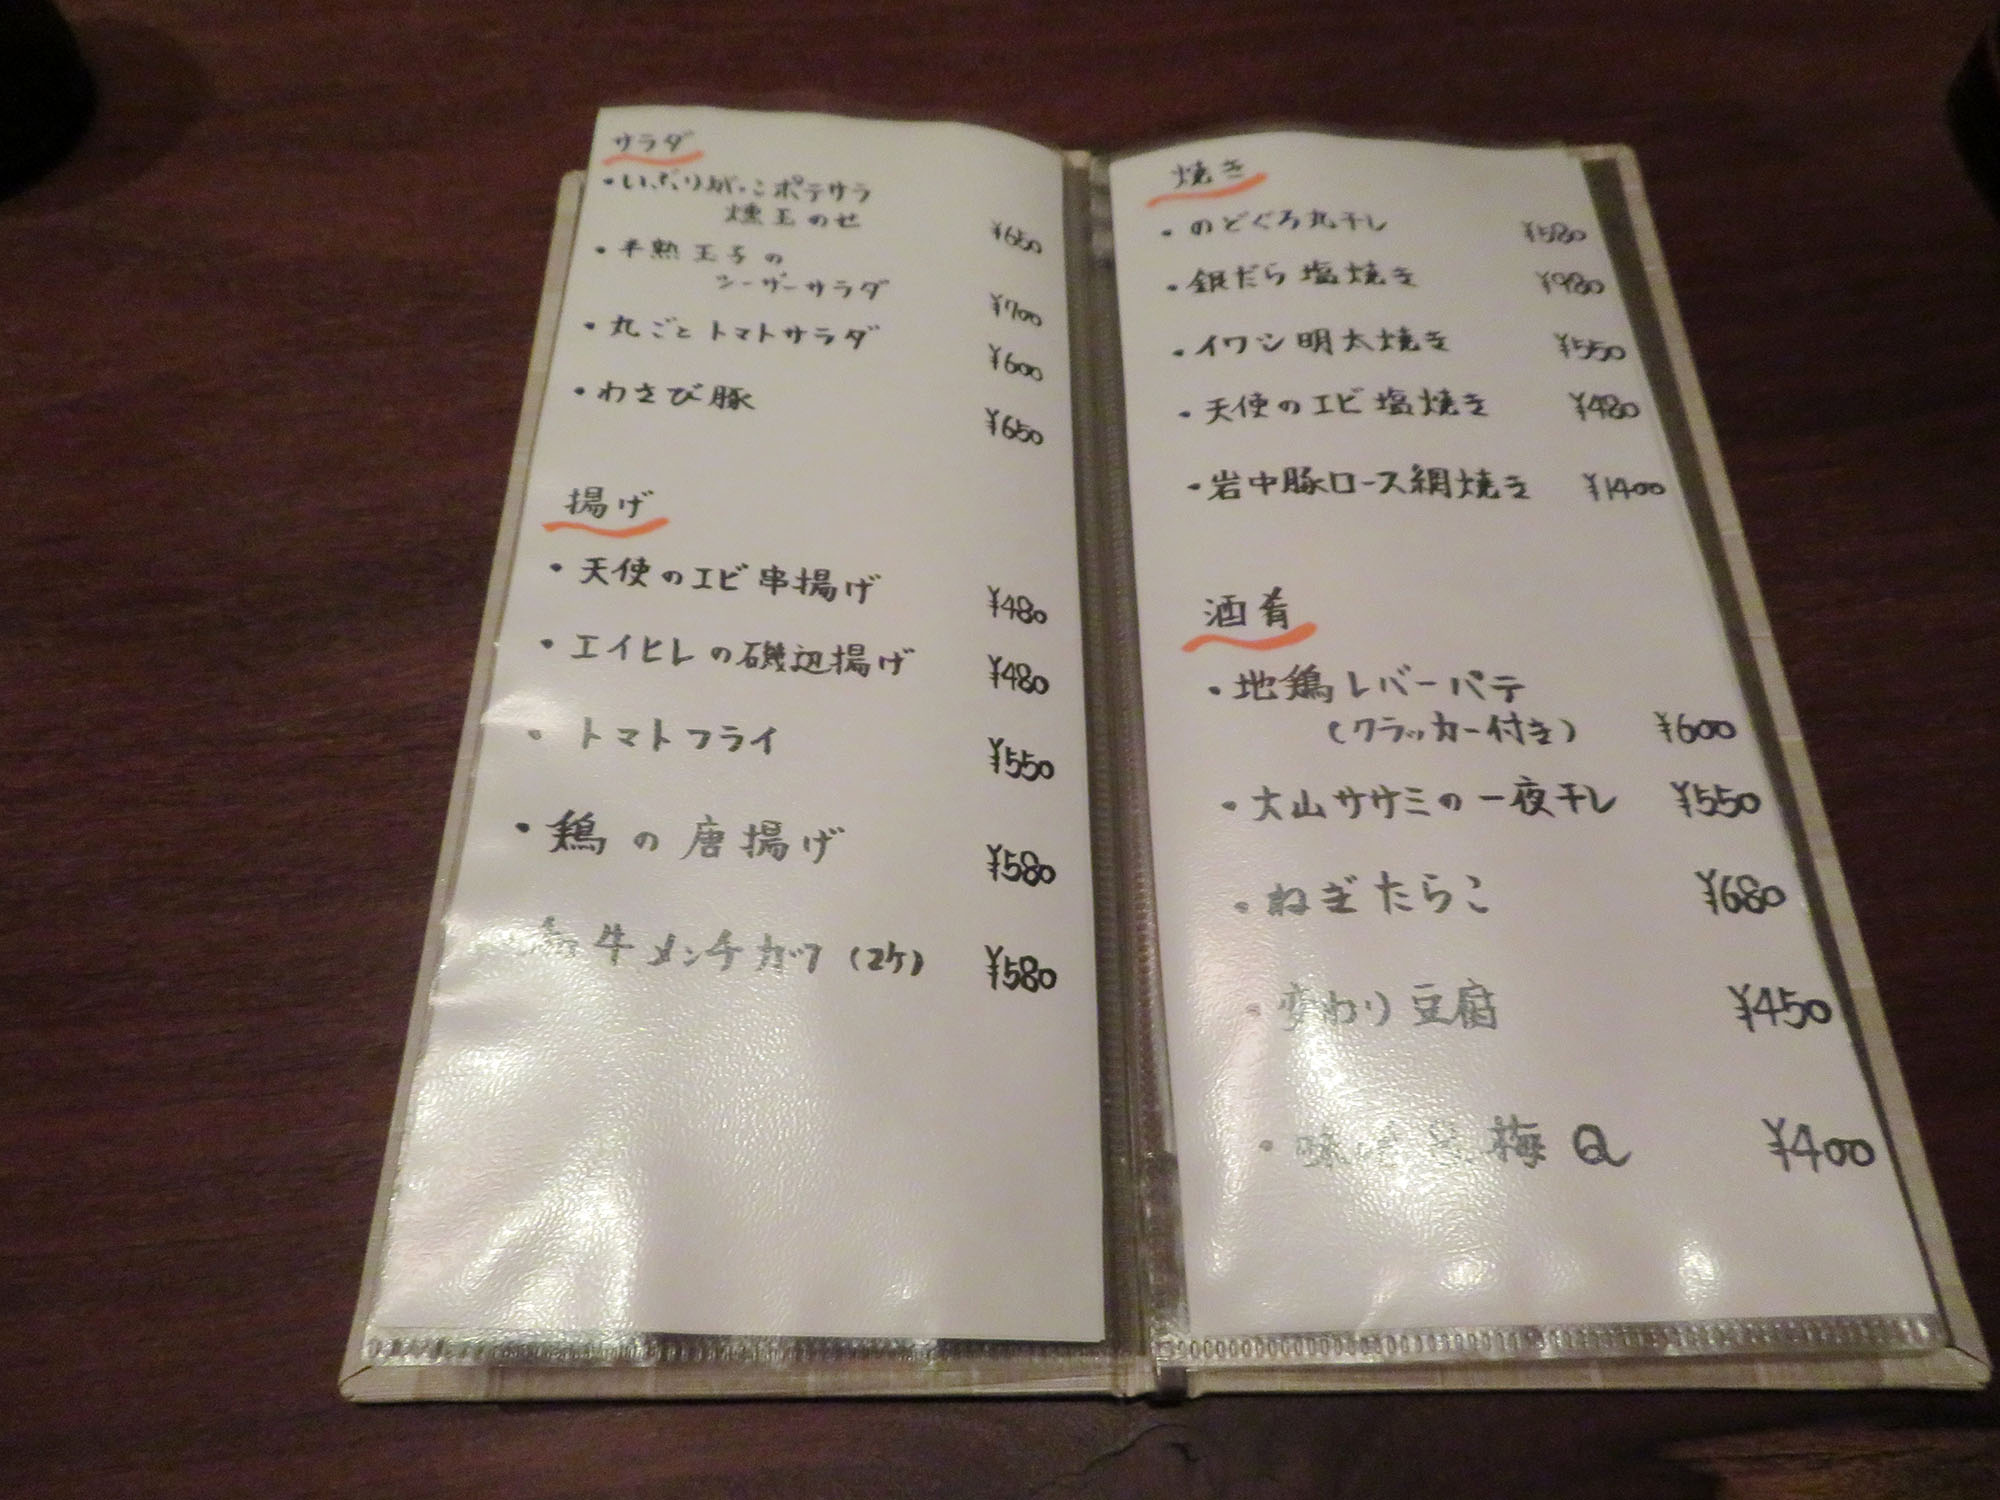 サラダ
・いぶりがっこポテサラ
燻玉のせ ¥650
・半熟玉子の
シーザーサラダ ¥700
・丸ごとトマトサラダ ¥600
・わさび豚 ¥650
揚げ
・天使のエビ串揚げ ¥480
・エイヒレの磯辺揚げ ¥480
・トマトフライ ¥550
・鶏の唐揚げ ¥580
牛メンチカツ(2ケ) ¥580
焼き
・のどぐろ丸干し ¥580
・銀だら塩焼き ¥980
・イワシ明太焼き ¥550
・天使のエビ塩焼き ¥480
・岩中豚ロース網焼き ¥1400
酒肴
・地鶏レバーパテ
(クラッカー付き) ¥600
・大山ササミの一夜干し ¥550
・ねぎたらこ ¥680
・変わり豆腐 ¥450
・梅Q ¥400